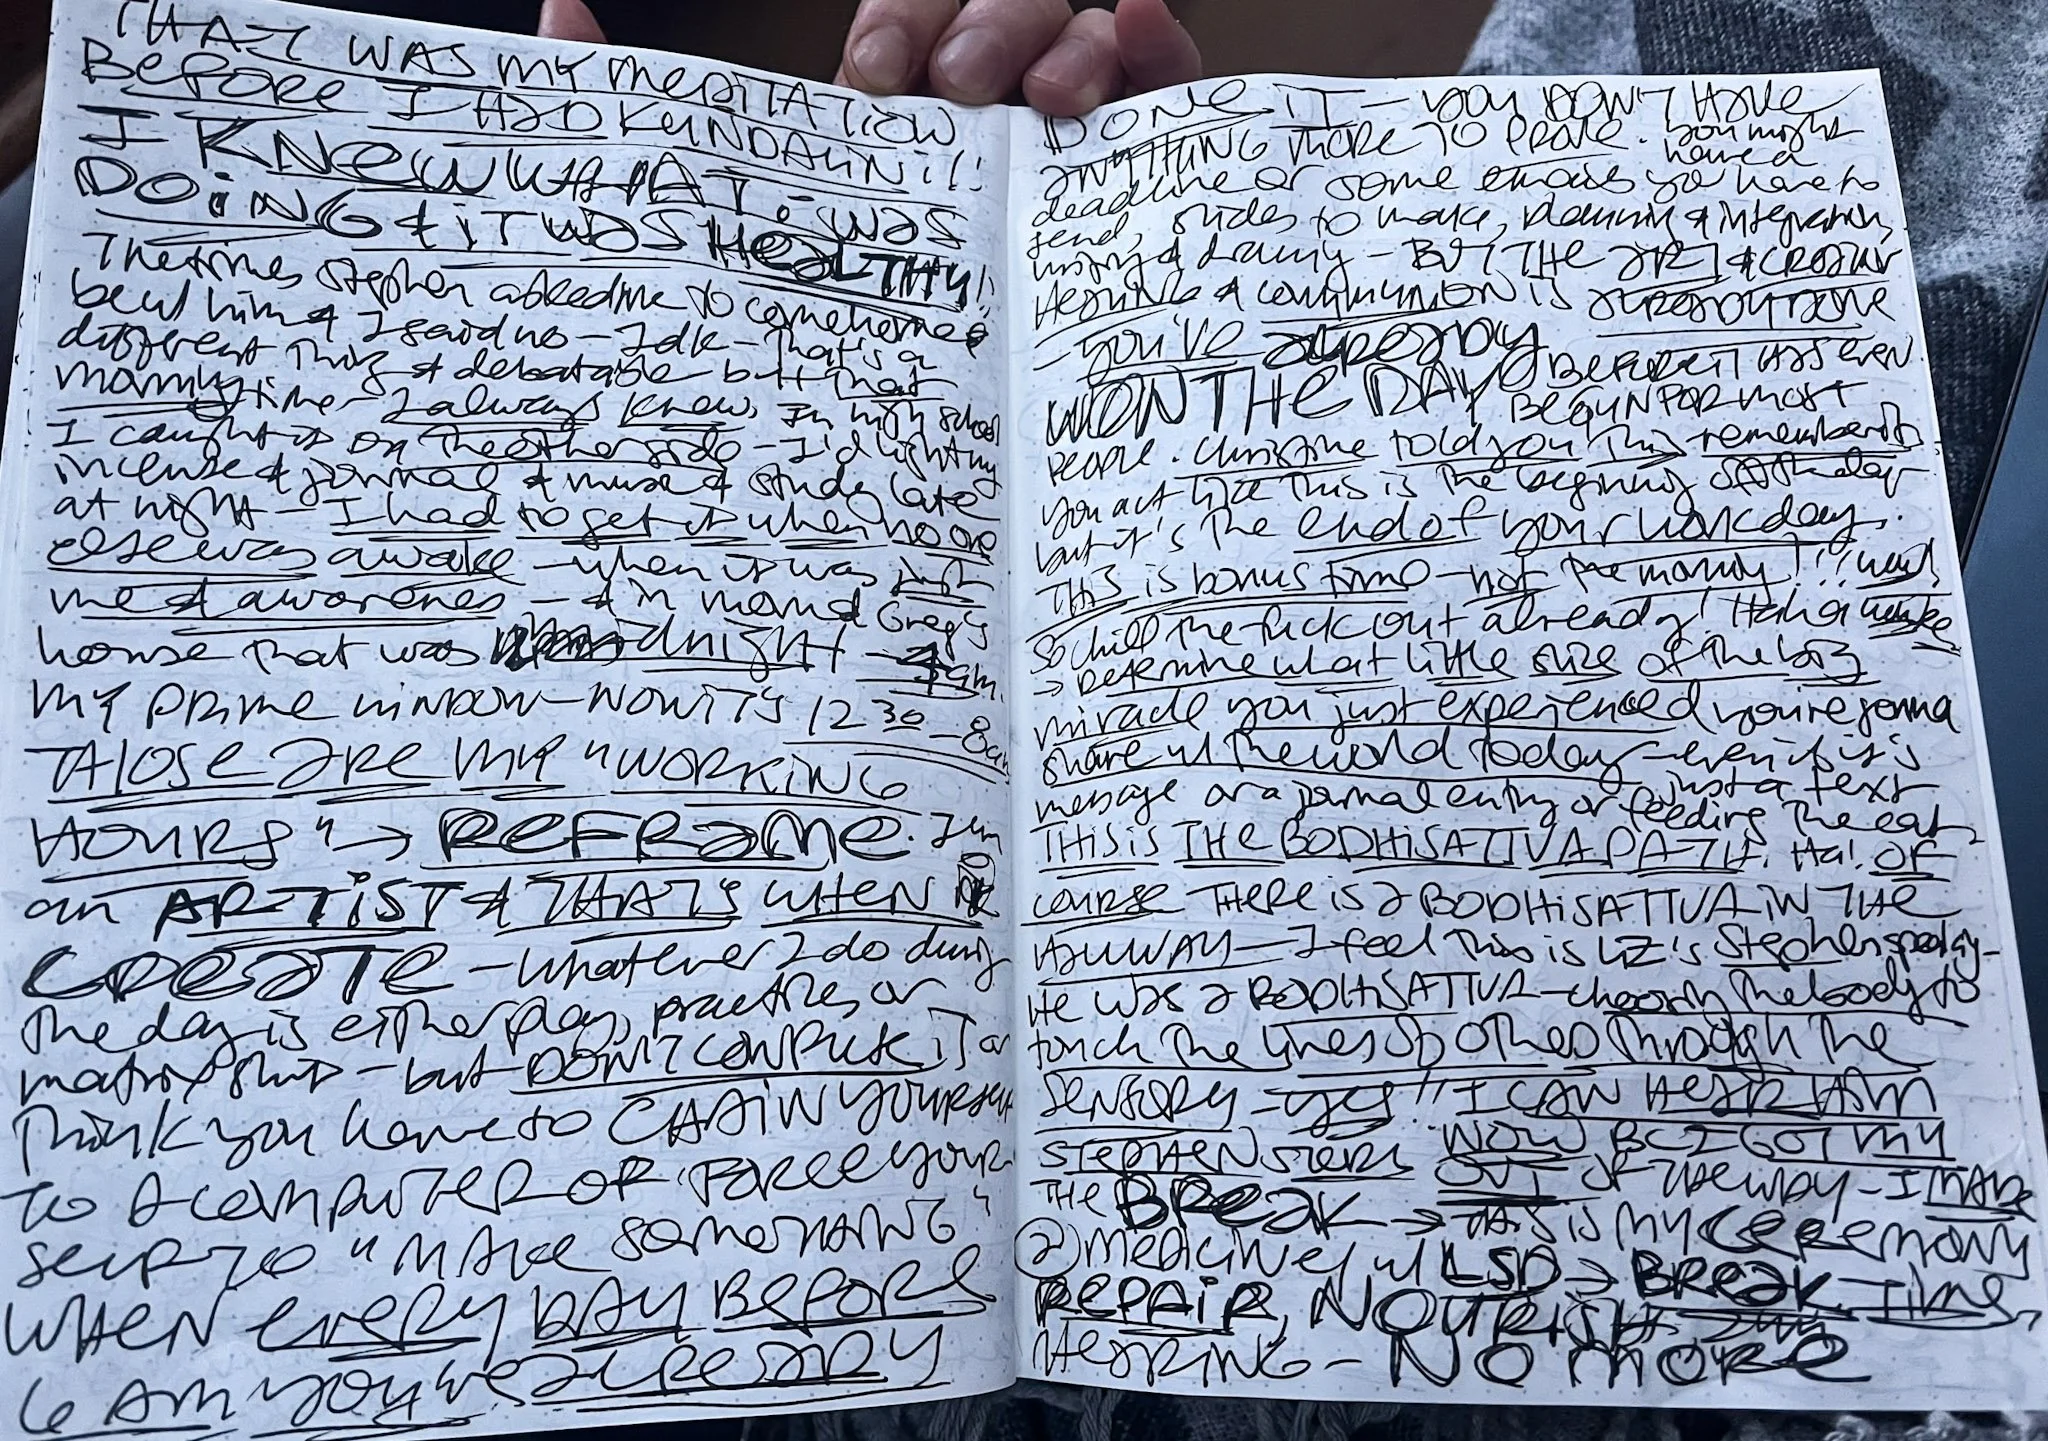 THAT WAS MY MEDITATION
BEFORE I HAD KUNDALINI!!
I KNEW WHAT I WAS
DOING & IT WAS HEALTHY!!
The times Stephen asked me to come home &
be w/ him & I said no - Idk - that's a
different thing & debatable but that
morning time I always knew. In high school
I caught it on the other side - I'd light my
incense & journal & muse & study late
at night - I had to get it when no one
else was awake - when it was just
me & awareness - & in mom and Greg's
house that was midnight - 4am.
MY PRIME WINDOW - NOW IT'S 12 30 - 8am
THOSE ARE MY "WORKING
HOURS" → REFRAME. I'm
an ARTIST & THAT'S WHEN I
CREATE - whatever I do during
the day is either play, practices or
matrix shit - but DON'T CONFUSE IT or
think you have to CHAIN YOURSELF
TO A COMPUTER OR FORCE YOUR
SELF TO "MAKE SOMETHING"
WHEN EVERY DAY BEFORE
6 AM YOU'VE ALREADY
DONE IT - YOU DON'T HAVE
ANYTHING MORE TO PROVE. You might
have a
deadline or some emails you have to
send, slides to make, planning & integration,
& - BUT THE ART & CREATIVE
HEARING & COMMUNION is ALREADY DONE
- YOU'VE ALREADY
WON THE DAY BEFORE IT HAS EVEN
BEGUN FOR MOST
PEOPLE. Christine told you this → remember it.
you act like this is the beginning of the day
but it's the end of your workday.
THIS is bonus time - not the morning!!!
So chill the fuck out already! Haha
→ Determine what little slice of the big
miracle you just experienced you're gonna
share w/ the world today - even if it's
just a text
message or a journal entry or feeding the cat
THIS is THE BODHISATTVA PATH. Ha! OF
course THERE IS A BODHISATTVA IN THE
HALLWAY - I feel this is LIZ'S Stephen speaking -
HE WAS A BODHISATTVA - choosing the body to
touch the lives of others through the
SENSORY - yes!! I CAN HEAR HIM
NOW BC I GOT MY
STEPHEN STORIES OUT OF THE WAY - I MADE
THE BREAK → this is my CEREMONY
② medicine w/ LSD → BREAK TIME,
REPAIR, NOURISH
HEARING - NO MORE